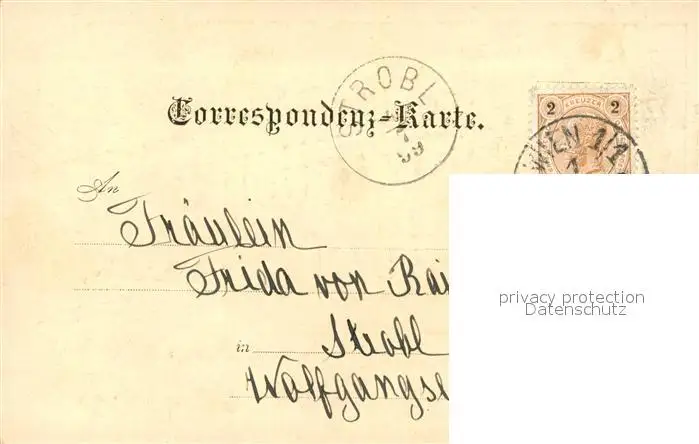 Correspondenz-Karte.
STROBL
7
99
2 KREUZER 2
WIEN 1/1
1
An
Fräulein
Frida von Rai
in Strobl
Wolfgangse
privacy protection
Datenschutz